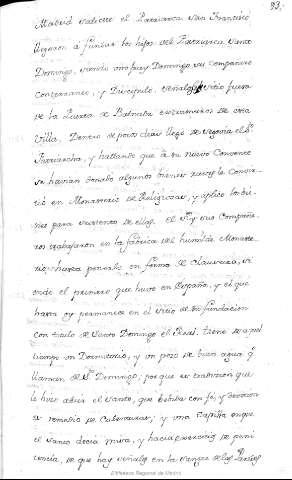 83.
Madrid saliese el Patriarca San Francisco
llegaron a fundar los hijos del Patriarca Santo
Domingo, siendo Domingo su compañero
y Discipulo, señalose sitio fuera
de la Puerta de Balnadu extramuros de esta
Villa. Dentro de pocos dias llegó de Segovia el Sto.
Patriarcha, y hallando que à su nuevo Convento
se havian donado algunos bienes raizes le convir-
tió en Monasterio de Religiosas, y aplico los bie-
nes para sustento de ellas. el Sto. y sus Compañe-
ros trabajaron en la fabrica del humilde Monaste-
rio, hasta ponerlo en forma de clausura, si-
endo el primero que huvo en España, y el que
hasta oy permanece en el sitio de su fundacion
con titulo de Santo Domingo el Real. tiene de aquel
tiempo un Dormitorio, y un pozo de buen agua q.
llaman de Sto. Domingo, porque es tradicion que
le hizo abrir el Santo, que bebida con fè, y devocion
es remedio de Calenturas; y una Capilla en que
el Santo decia misa, y hacia exercicios de peni-
tencia, de que hay señales en la sangre de las Paredes
Biblioteca Regional de Madrid